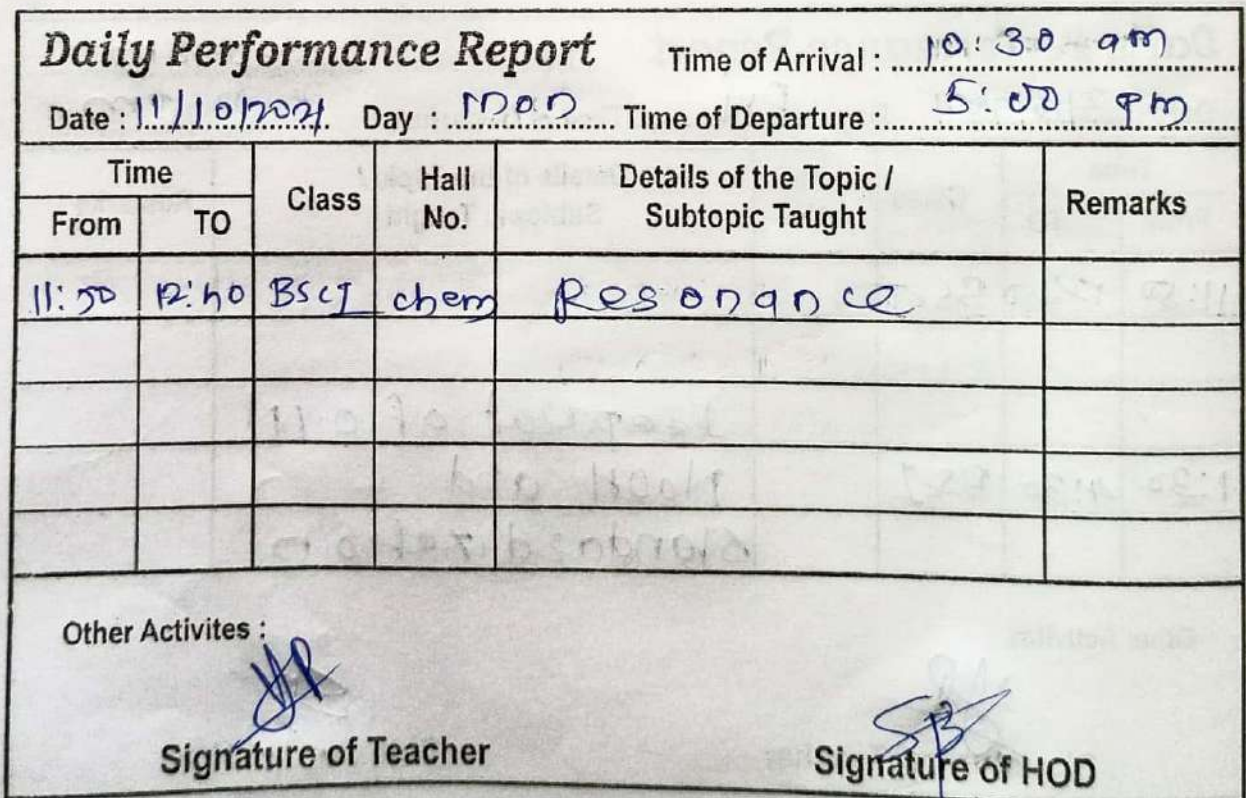 Daily Performance Report Time of Arrival : 10:30 am
Date : 11/10/2021 Day : Mon Time of Departure : 5:00 pm
Time Class Hall No. Details of the Topic / Subtopic Taught Remarks
From TO
11:50 12:40 BSc I chem Resonance
Other Activites :
Signature of Teacher Signature of HOD